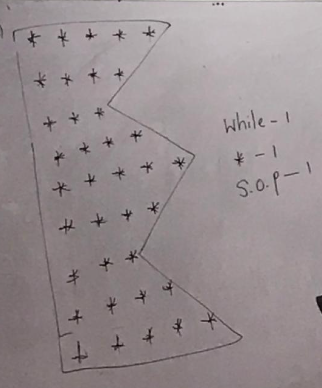 * * * * *
* * * *
* * *
* * * *
* * * * *
* * * *
* * *
* * * *
* * * * *
While - 1
* - 1
S.O.P - 1